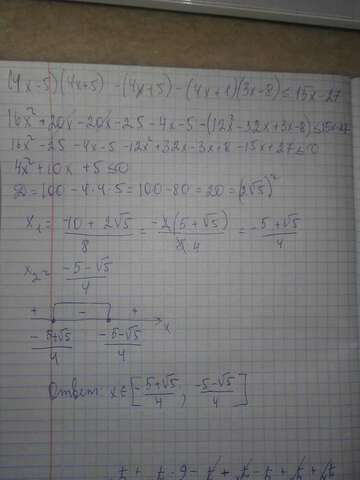 (4x-5)(4x+5) - (4x+5) - (4x+1)(3x-8) ≤ 15x-27
16x²+20x-20x-25-4x-5-(12x²-32x+3x-8) ≤ 15x-27
16x²-25-4x-5-12x²+32x-3x+8-15x+27 ≤ 0
4x²+10x+5 ≤ 0
D = 100-4·4·5 = 100-80 = 20 = (2√5)²
x₁ = (-10+2√5)/8 = (-2(5+√5))/(8 4) = (-5+√5)/4
x₂ = (-5-√5)/4
+ - + x
-(5+√5)/4 (-5-√5)/4
Ответ: x∈[-(5+√5)/4 ; (-5-√5)/4]